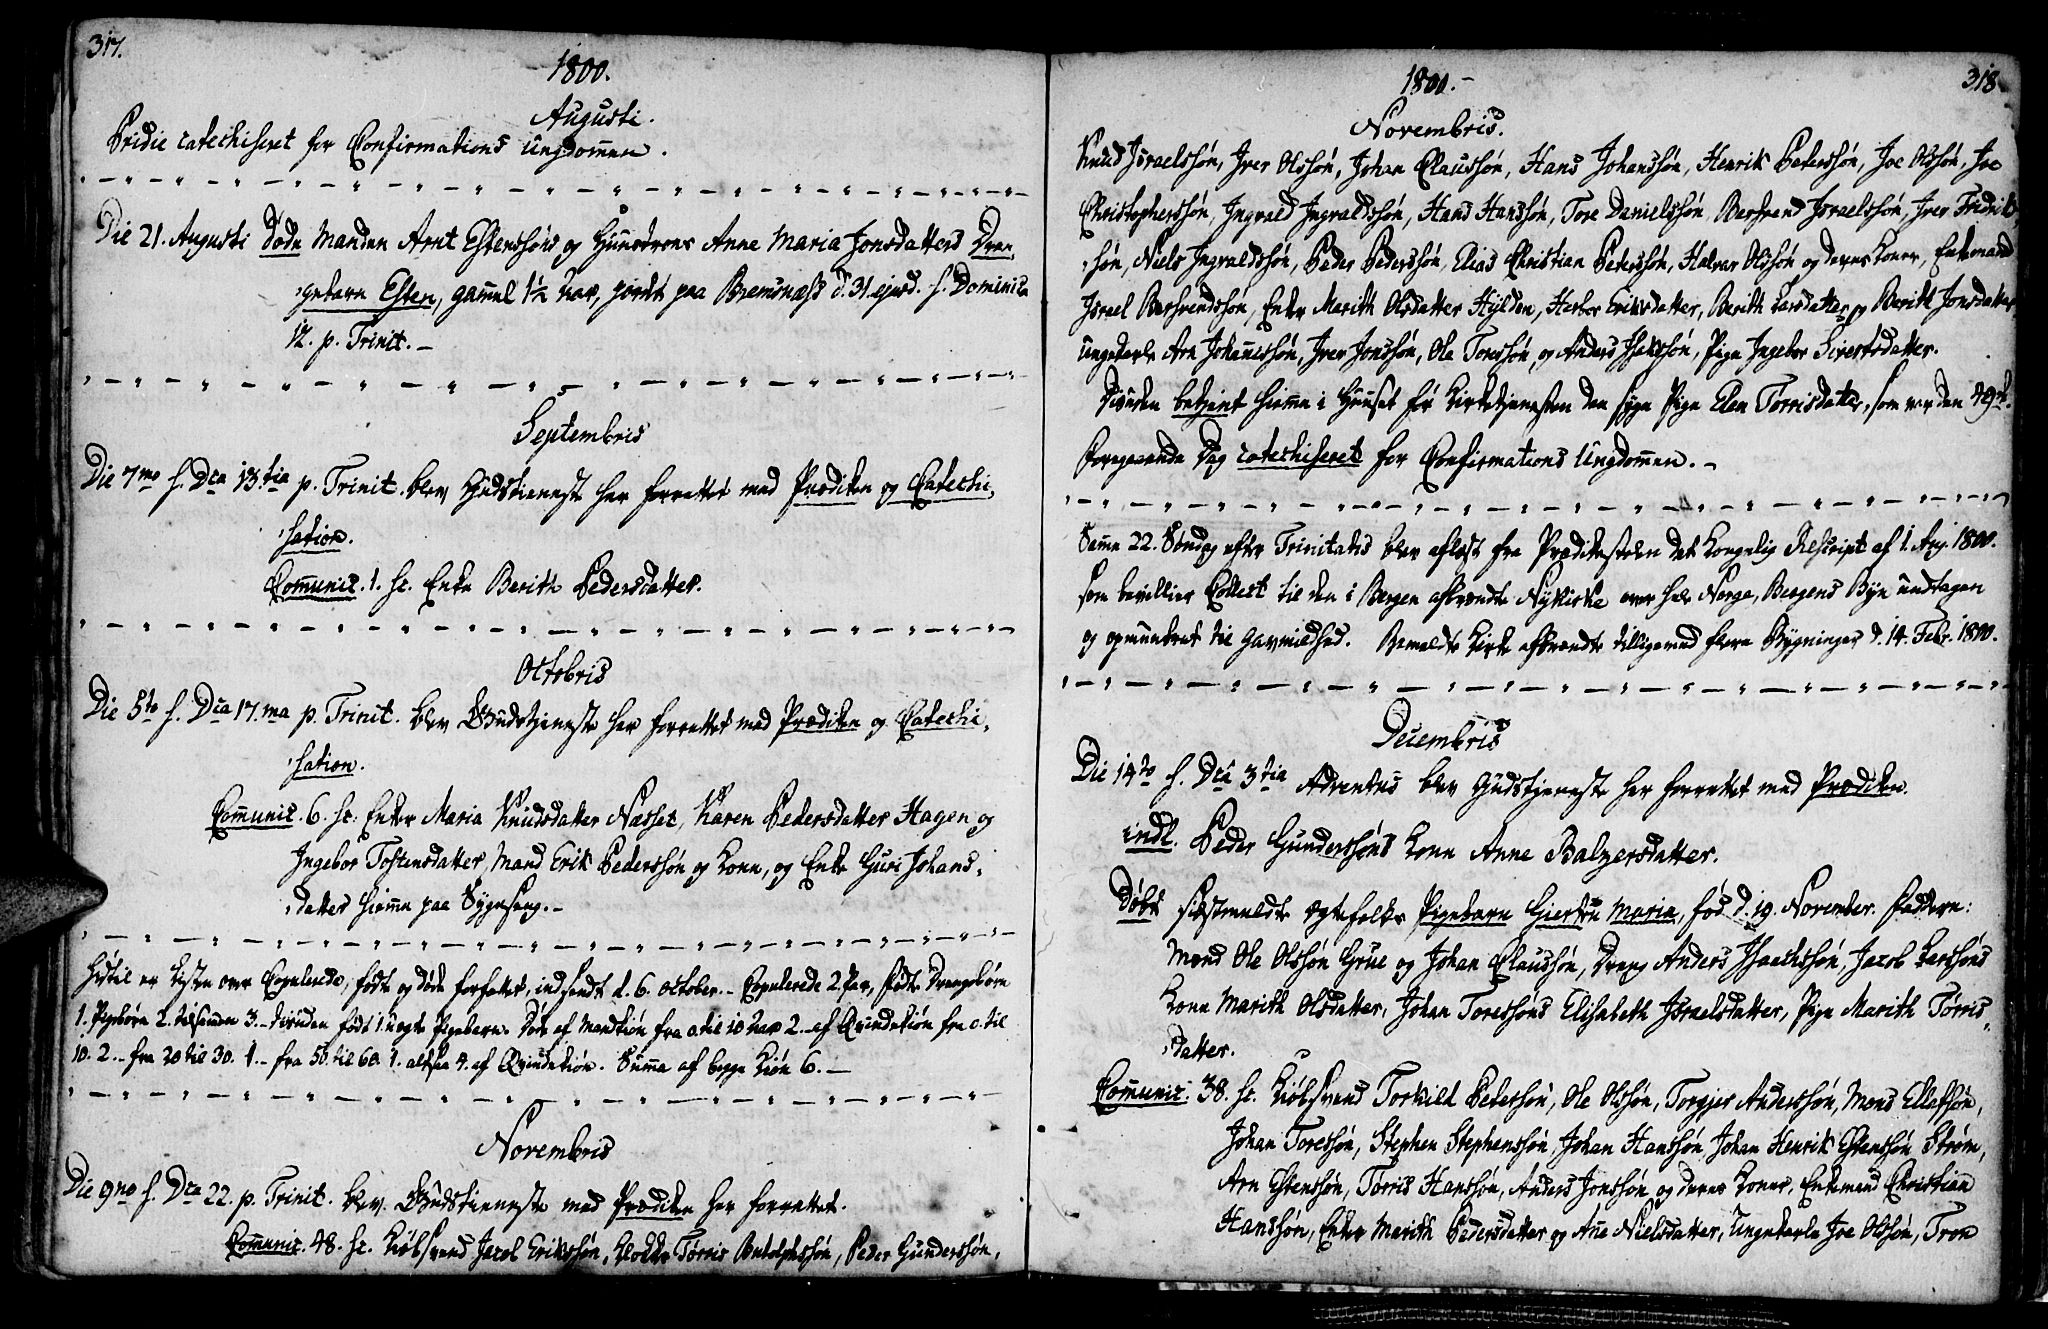 317.
1800.
Augusti.
Pridie catechiseret for Confirmations Ungdommen.
Die 21. Augusti døde Manden Arnt Estenssøns og Huusdrons Anne Maria Jonsdatters Dren,
,gebarn Esten, gamel 1½ Aar, jordet paa Bremsnæss d. 31. ejusd. s. Dominica
12. p. Trinit.
Septembris
Die 7mo s. Dca 13.tia p. Trinit. blev Gudstienneste her forrettet med Prædiken og Catechi,
,sation.
Comunic. 1. sc. Enke Berith Pedersdatter.
Octobris
Die 5to s. Dca 17.ma p. Trinit. blev Gudstjenneste her forrettet med Prædiken og Catechi,
,sation.
Comunic. 6. sc. Enker Maria Knudsdatter Næsset, Karen Pedersdatter Hagen og
Ingebor Tostensdatter, Mand Erik Pederssøn og Kone, og Enke Guri Johans,
,datter hiemme paa Sygeseng.
Hidtil er Listen over Copulerede, fødte og døde forfattet, indsendt d. 6. October. Copulerede 2 Par, Fødte Drengebørn
1. Pigebørn 2. tilsammen 3. desuden født 1 uægte Pigebarn. Døde af Mandkiøn fra 0 til 10 Aar 2. af Qvindekiøn fra 0 til
10. 2. fra 20 til 30. 1. fra 50. til 60. 1. altsaa 4. af Qvindekiøn. Summa af begge Kiøn 6.
Novembris
Die 9no s. Dca 22. p. Trinit. blev Gudstienneste med Prædiken her forrettet.
Comunic. 48. sc. Kiøbsvend Jacob Erikssøn, Klokker Tørris Antolphssøn, Peder Gunderssøn,
1800.
318
Novembris.
Knud Israelssøn, Iver Olssøn, Johan Claussøn, Hans Johanssøn, Henrik Pederssøn, Joe Olssøn, Joe
Christopherssøn, Ingvald Ingvaldssøn, Hans Hanssøn, Tore Danielssøn, Bersvend Israelssøn, Iver Fridriks
,søn, Niels Ingvaldssøn, Peder Pederssøn, Elias Christian Pederssøn, Halvor Olssøn og deres Koner, Enkemand
Israel Bersvendssøn, Enker Marith Olsdatter Hylden, Herbor Eriksdatter, Berith Larsdatter og Berith Jonsdatter
Ungekarle Arn Johannssøn, Iver Jonssøn, Ole Toressøn, og Anders Isakssøn, Pige Ingebor Sivertsdatter.
Desuden betjent hiemme i Huuset før Kirketjenesten den syge Pige Elen Torrisdatter, som var den 49de.
Foregaaende Dag catechiseret for Confirmations Ungdommen.
Samme 22. Søndag efter Trinitatis blev aflæst fra Prædikestolen det Kongelig Rescript af 1. Aug. 1800.
som bevillier Collect til den i Bergen afbrændte Nykirke over hele Norge, Bergens Bye undtagen
og opmuntret til Gavmildhed. Bemeldte Kirke afbrændte tilligemed flere Bygninger d. 14. Febr. 1800.
Decembris
Die 14to s. Dca 3tia Adventus blev Gudstjeneste her forrettet med Prædiken.
indl. Peder Gunderssøns Kone Anne Balzersdatter.
Døbt sidstmeldte Ægtefolks Pigebarn Giertru Maria, fød d. 19. November. Faddere:
Mænd Ole Olssøn Grue og Johan Claussøn, Dreng Anders Isaachssøn, Jacob Larssøns
Kone Marith Olsdatter, Johan Toressøns Elisabeth Israelsdatter, Pige Marith Tørris,
,datter.
Comunic. 38. sc. Kiøbsvend Torkild Pedersøn, Ole Olssøn, Torgjer Anderssøn, Mons Ellefsøn,
Johan Toressøn, Stephen Stephenssøn, Johan Hanssøn, Johan Henrik Estenssøn Strøm,
Arn Estenssøn, Tørris Hanssøn, Anders Jonssøn og deres Koner, Enkemand Christian
Hanssøn, Enker Marith Pedersdatter og Ane Nielsdatter, Ungekarle Joe Olssøn, Tron